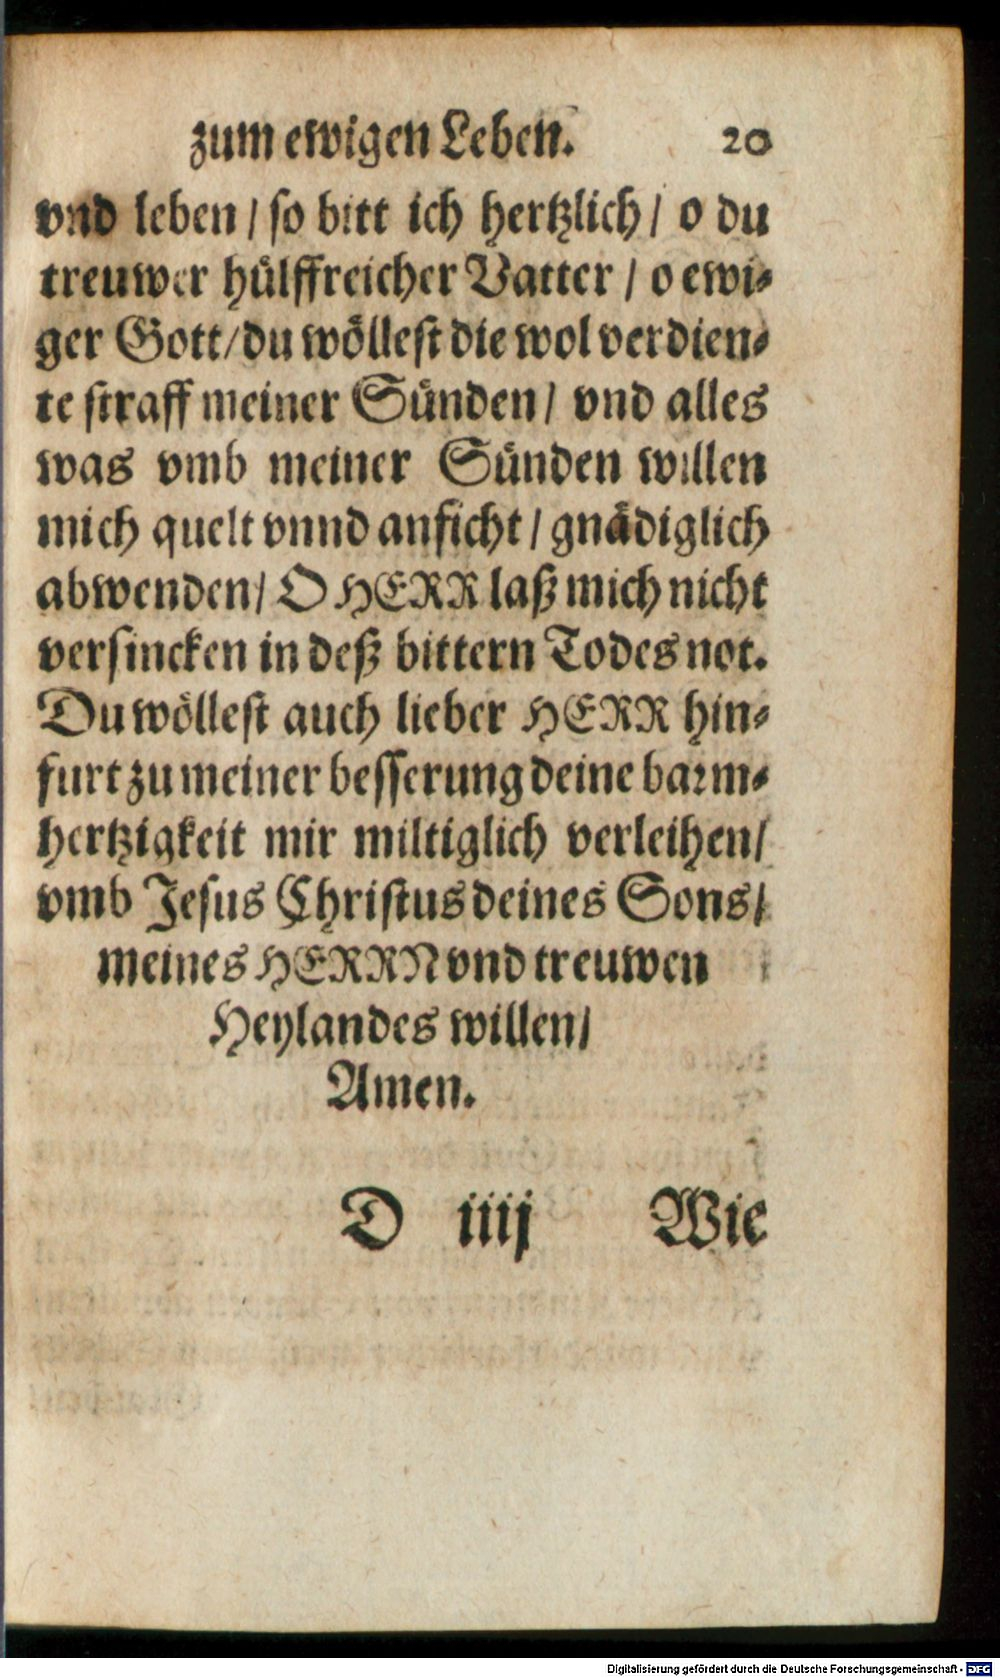 zum ewigen Leben. 20
vnd leben / so bitt ich hertzlich / o du
treuwer hülffreicher Vatter / o ewi-
ger Gott / du wöllest die wol verdien-
te straff meiner Sünden / vnd alles
was vmb meiner Sünden willen
mich quelt vnnd anficht / gnädiglich
abwenden / O HERR laß mich nicht
versincken in deß bittern Todes not.
Du wöllest auch lieber HERR hin-
furt zu meiner besserung deine barm-
hertzigkeit mir miltiglich verleihen /
vmb Jesus Christus deines Sons /
meines HERRN vnd treuwen
Heylandes willen /
Amen.
D iiij Wie
Digitalisierung gefördert durch die Deutsche Forschungsgemeinschaft - DFG